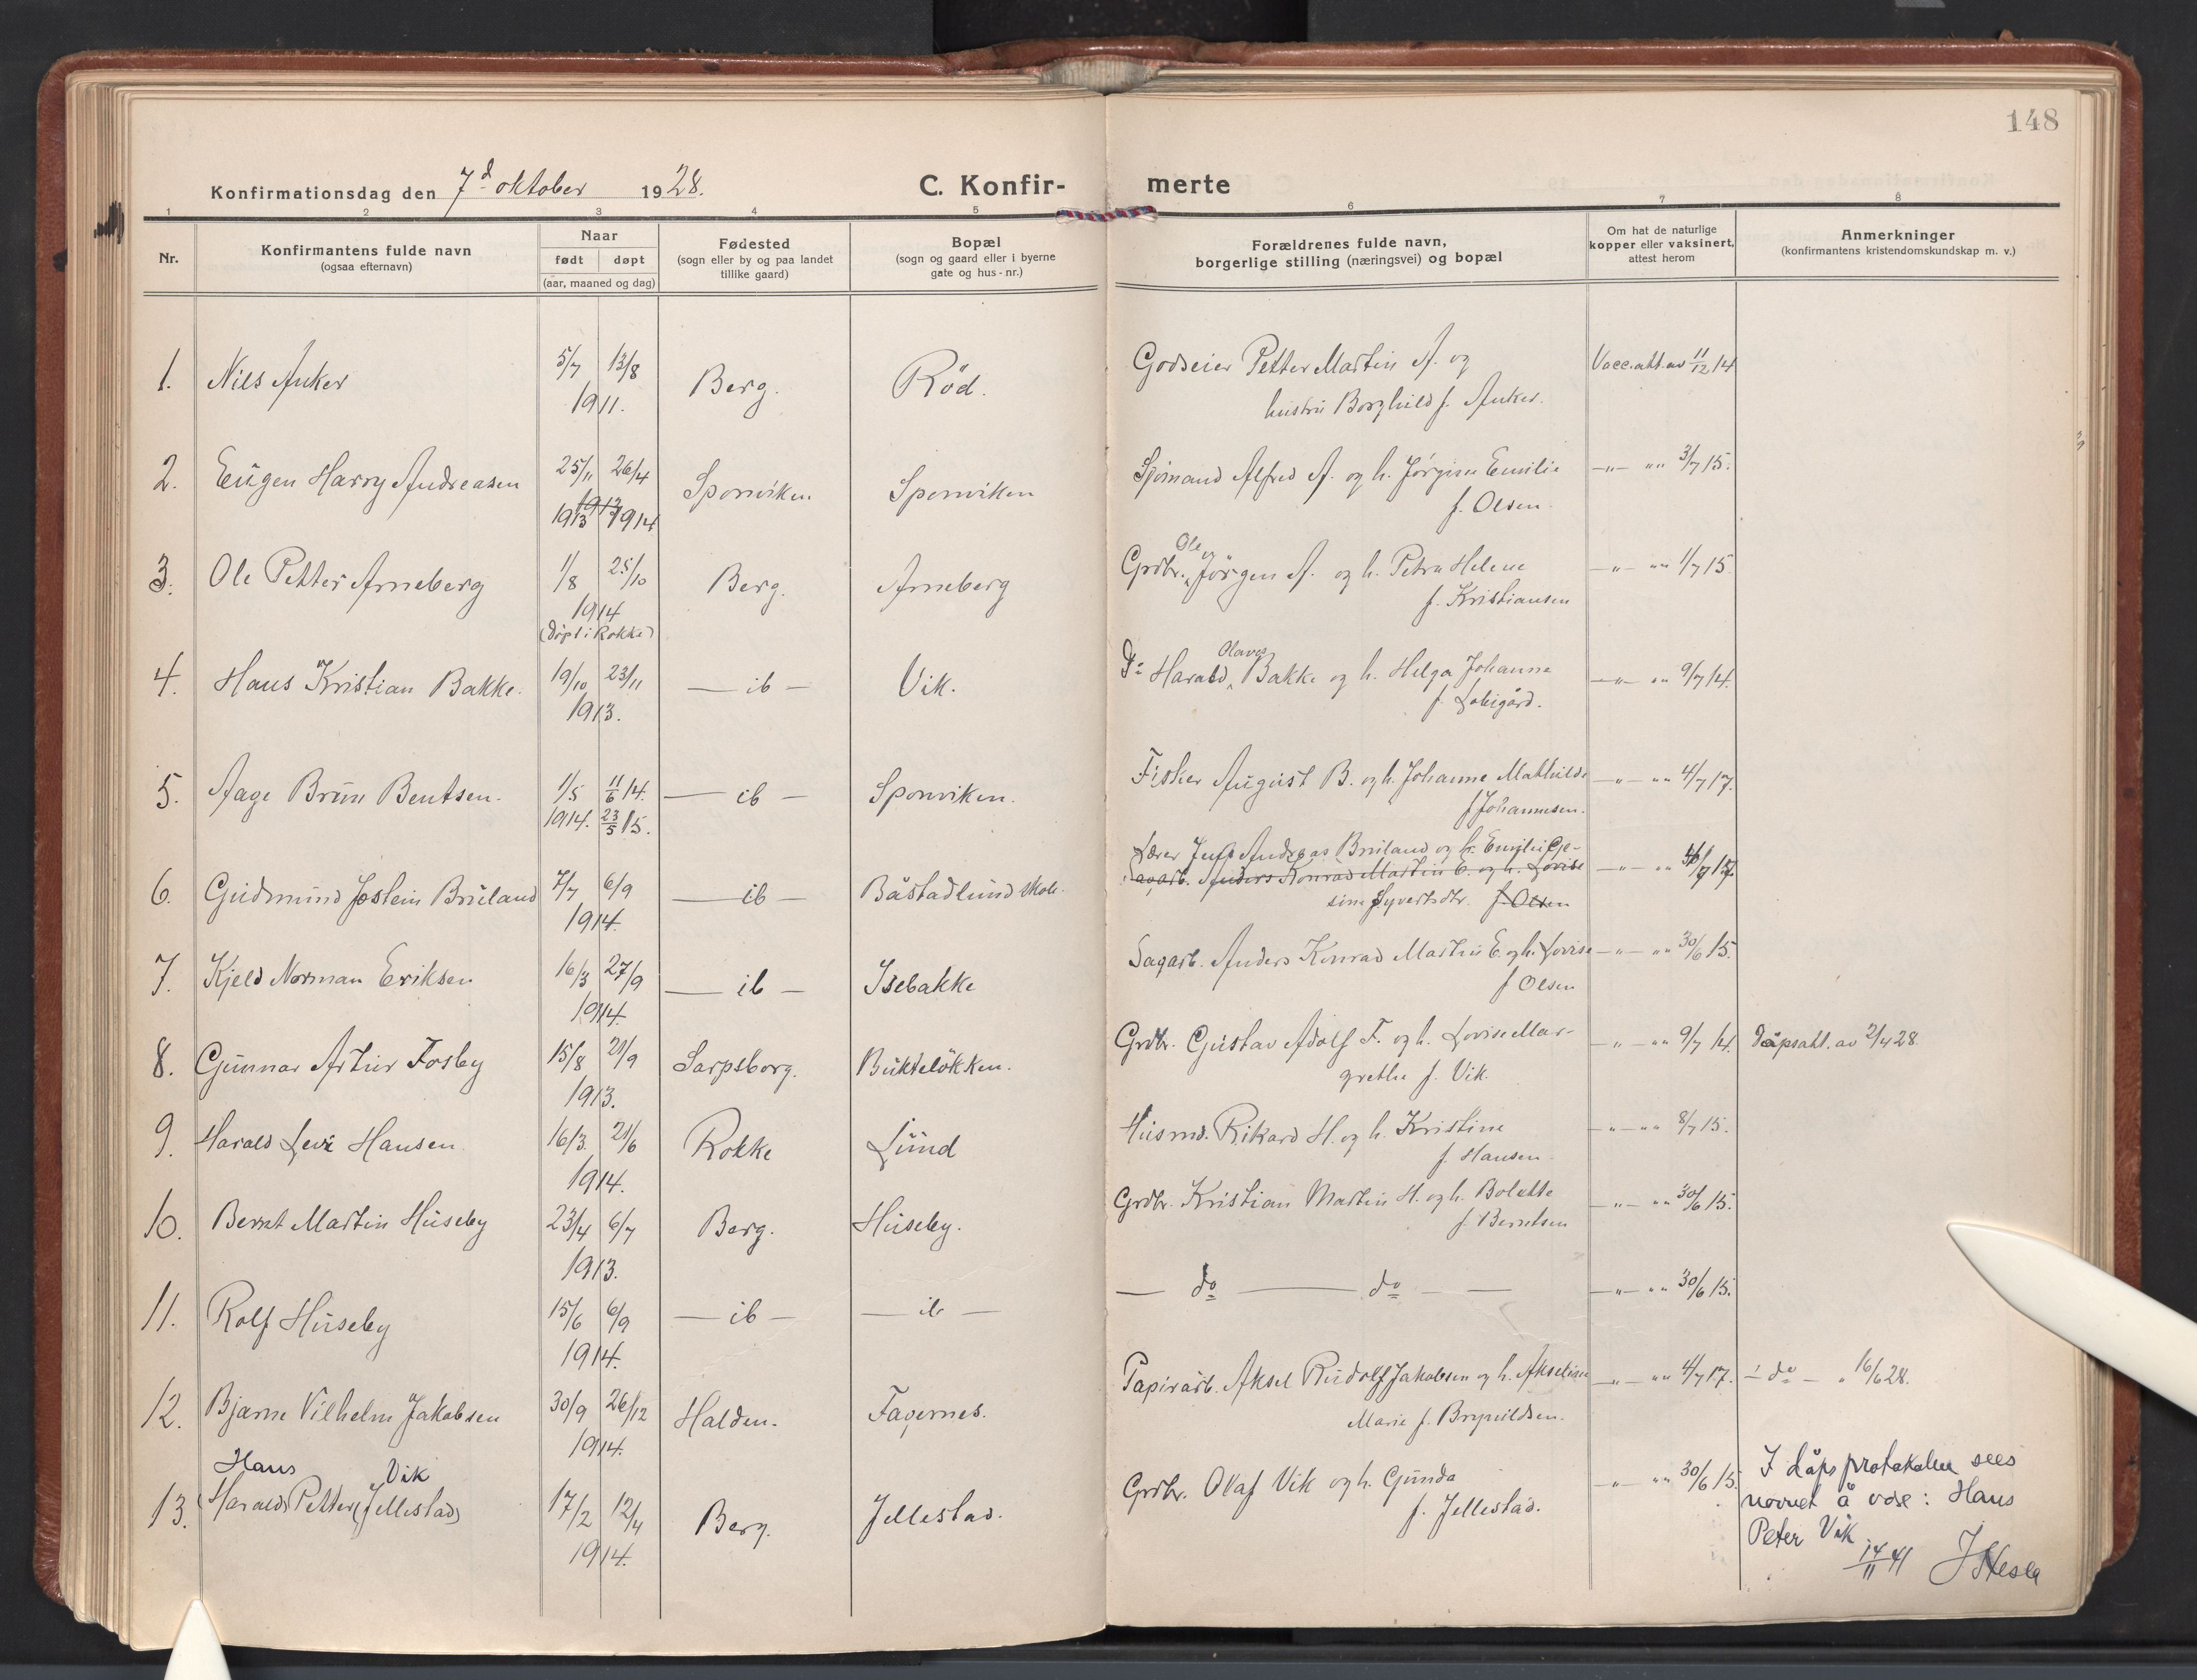 148
Konfirmationsdag den 7d oktober 1928.
C. Konfir- merte
1 2 3 4 5 6 7 8
Nr.
Konfirmantens fulde navn
(ogsaa efternavn)
Naar
født døpt
(aar, maaned og dag)
Fødested
(sogn eller by og paa landet
tillike gaard)
Bopæl
(sogn og gaard eller i byerne
gate og hus-nr.)
Forældrenes fulde navn,
borgerlige stilling (næringsvei) og bopæl
Om hat de naturlige
kopper eller vaksinert,
attest herom
Anmerkninger
(konfirmantens kristendomskundskap m. v.)
1. Nils Anker 5/7 13/8 1911. Berg. Röd.
Godseier Petter Martin A. og
hustru Borghild f. Anker.
Vacc.att. av 11/12 14
2. Eugen Harry Andreasen 25/11 1913 26/4 1914 Sponviken Sponviken
Sjömand Alfred A. og h. Jörgine Emilie
f. Olsen.
—"— "" 3/7 15.
3. Ole Petter Arneberg 1/8 25/10 1914 (döpt i Rokke) Berg. Arneberg
Grdbr. Ole og Jörgen A. og h. Petra Helene
f. Kristiansen
—"— "" 1/7 15.
4. Hans Kristian Bakke. 19/10 23/11 1913. — ib — Vik.
Do Harald Olaves Bakke og h. Helga Johanne
f. Labigård.
—"— "" 9/7 14.
5. Aage Brun Bentsen. 1/5 1914. 11/6 14. 23/5 15. — ib — Sponviken.
Fisker August B. og h. Johanne Mathilde
f Johannesen.
—"— "" 4/7 17.
6. Gudmund Jostein Bruland 7/7 6/9 1914. — ib — Båstadlund skole.
Lærer Andreas Bruland og h. Emilie Ge-
Anders Konrad Martin E. og h. Lovise
sine Syvertsdtr. f. Olsen
—"— ""
7. Kjeld Norman Eriksen 16/3 27/9 1914. — ib — Isebakke
Sagarb. Anders Konrad Martin E. og h. Lovise
f Olsen
—"— "" 30/6 15.
8. Gunnar Artur Fosby 15/8 21/9 1913. Sarpsborg. Bukteløkken.
Grdbr. Gustav Adolf F. og h. Lovise Mar-
grethe f. Vik.
—"— "" 9/7 14. Dåpsatt. av 2/4 28.
9. Harald Levi Hansen. 16/3 21/6 1914. Rokke Lund
Husmd. Rikard H. og h. Kristine
f. Hansen
—"— "" 8/7 15.
10. Bernt Martin Huseby 23/4 6/7 1913. Berg. Huseby.
Grdbr. Kristian Martin H. og h. Bolette
f. Berntsen
—"— "" 30/6 15.
11. Rolf Huseby 15/6 6/9 1914. — ib — — ib —
— do — do — —
—"— "" 30/6 15.
12. Bjarne Vilhelm Jakobsen 30/9 26/12 1914. Halden. Fagernes.
Papirarb. Aksel Rudolf Jakobsen og h. Akseline
Marie f. Brynildsen.
—"— "" 4/7 17. — do — " 16/6 28.
Hans Vik
13. (Harald) Petter (Jellestad) 17/2 12/4 1914. Berg. Jellestad.
Grdbr. Olaf Vik og h. Gunda
f. Jellestad.
—"— "" 30/6 15.
I dåpsprotokollen sees
navnet å være: Hans
Peter Vik
14/11 41